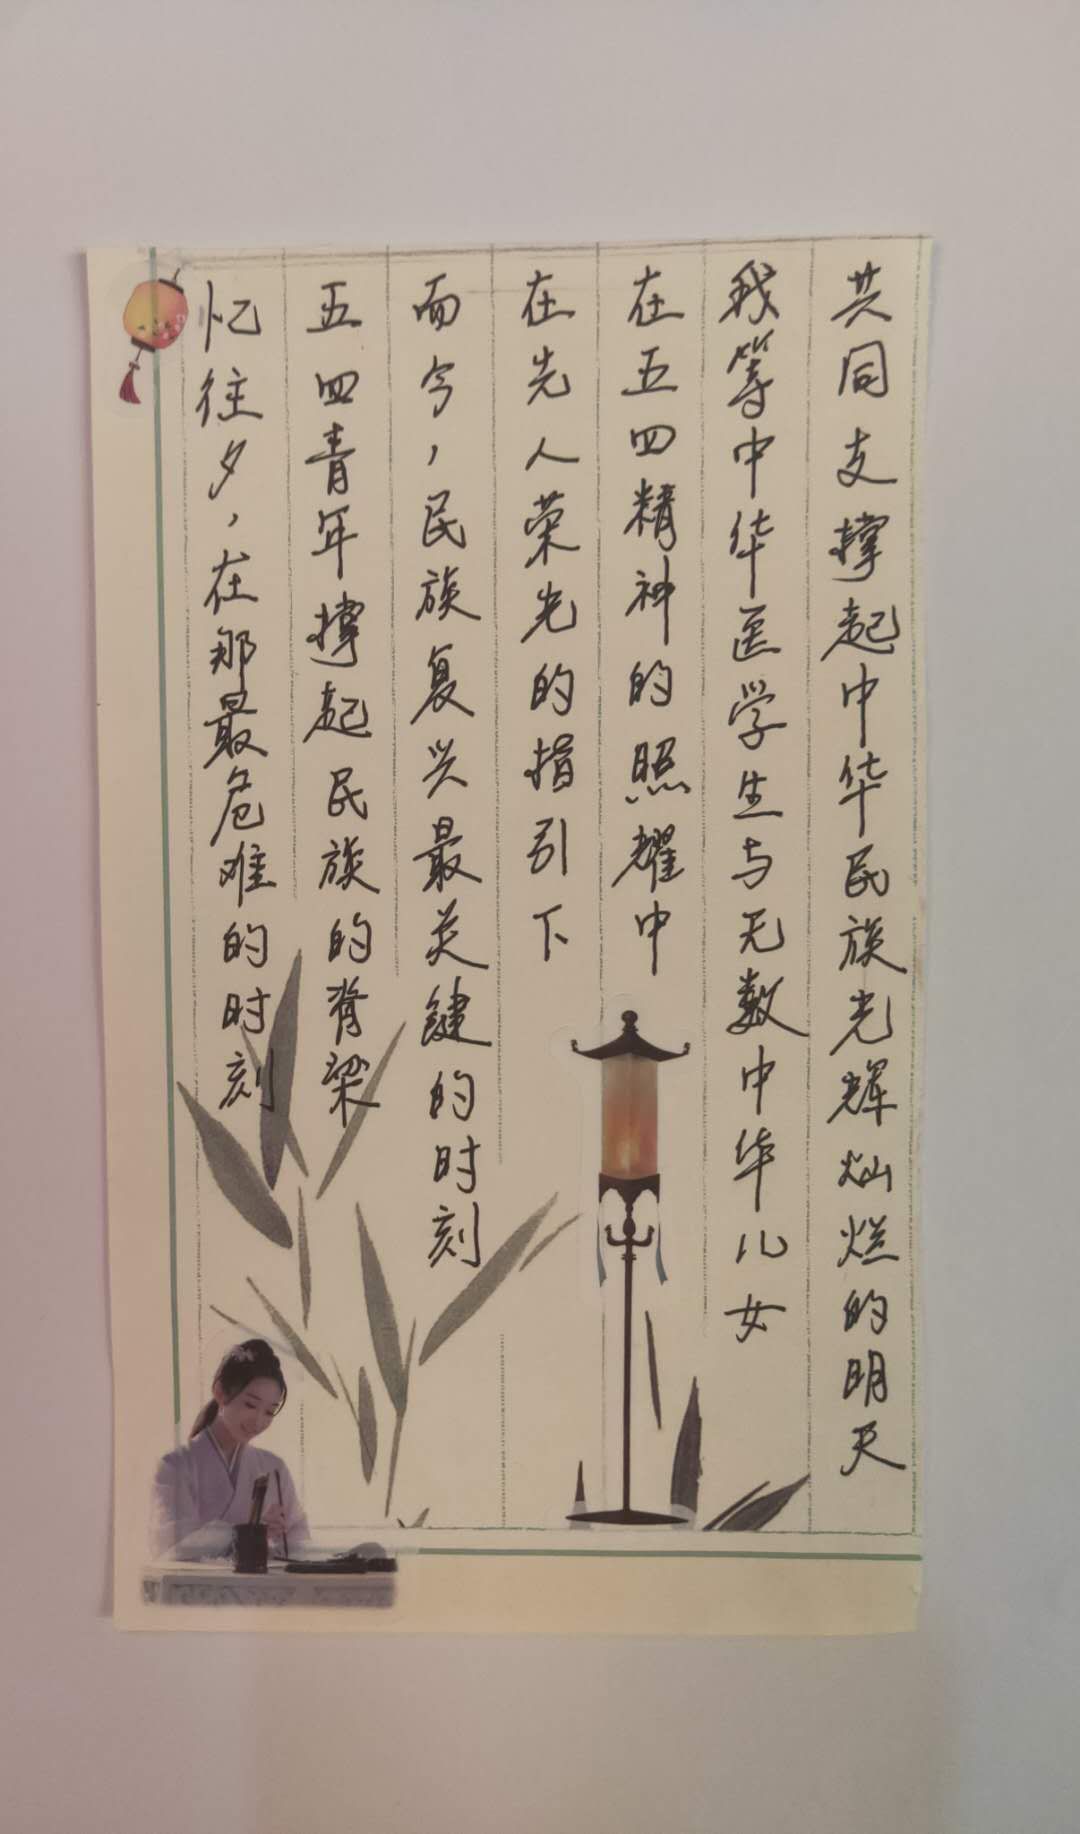 忆往夕，在那最危难的时刻
五四青年撑起民族的脊梁
而今，民族复兴最关键的时刻
在先人荣光的指引下
在五四精神的照耀中
我等中华医学生与无数中华儿女
共同支撑起中华民族光辉灿烂的明天